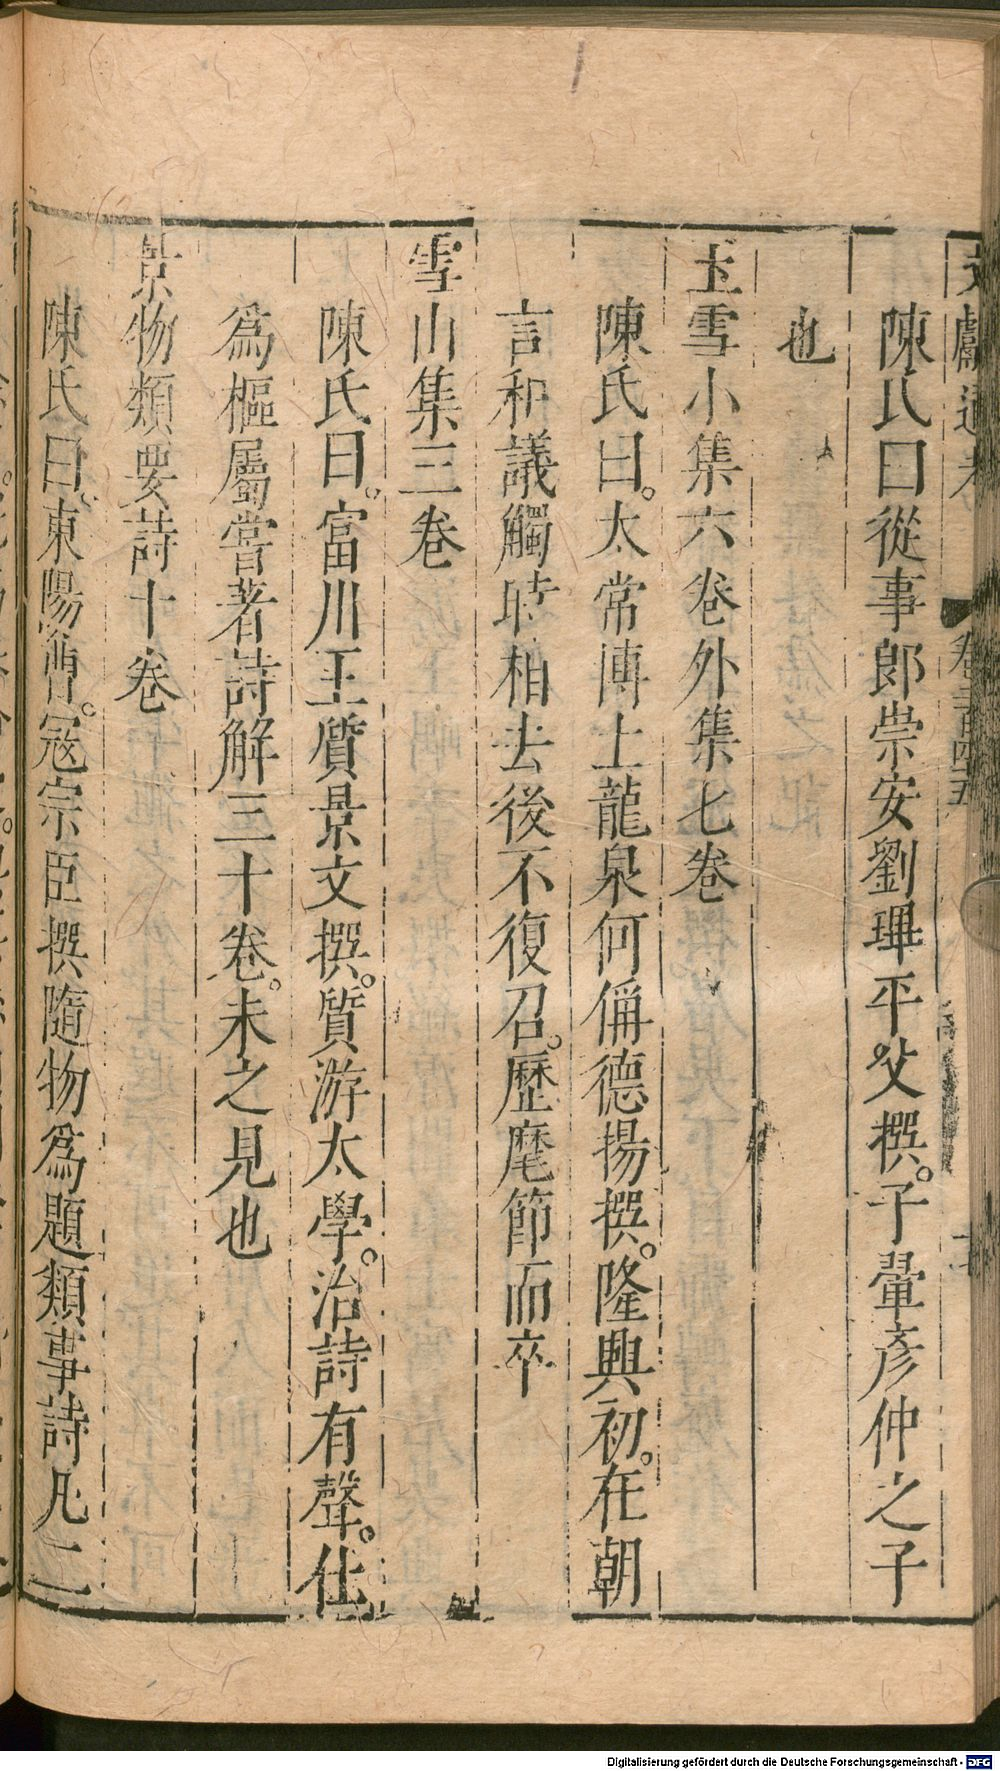 文獻通考 卷二百四五
陳氏曰從事郎崇安劉琿平父撰。子翬彥仲之子
也
玉雪小集六卷外集七卷
陳氏曰。太常博士龍泉何偁德揚撰。隆興初。在朝
言和議觸時相去後不復召。歷麾節而卒
雪山集三卷
陳氏曰。富川王質景文撰。質游太學。治詩有聲。仕
為樞屬嘗著詩解三十卷。未之見也
景物類要詩十卷
陳氏曰。東陽曹。冦宗臣撰隨物為題類事詩凡二
Digitalisierung gefördert durch die Deutsche Forschungsgemeinschaft - DFG